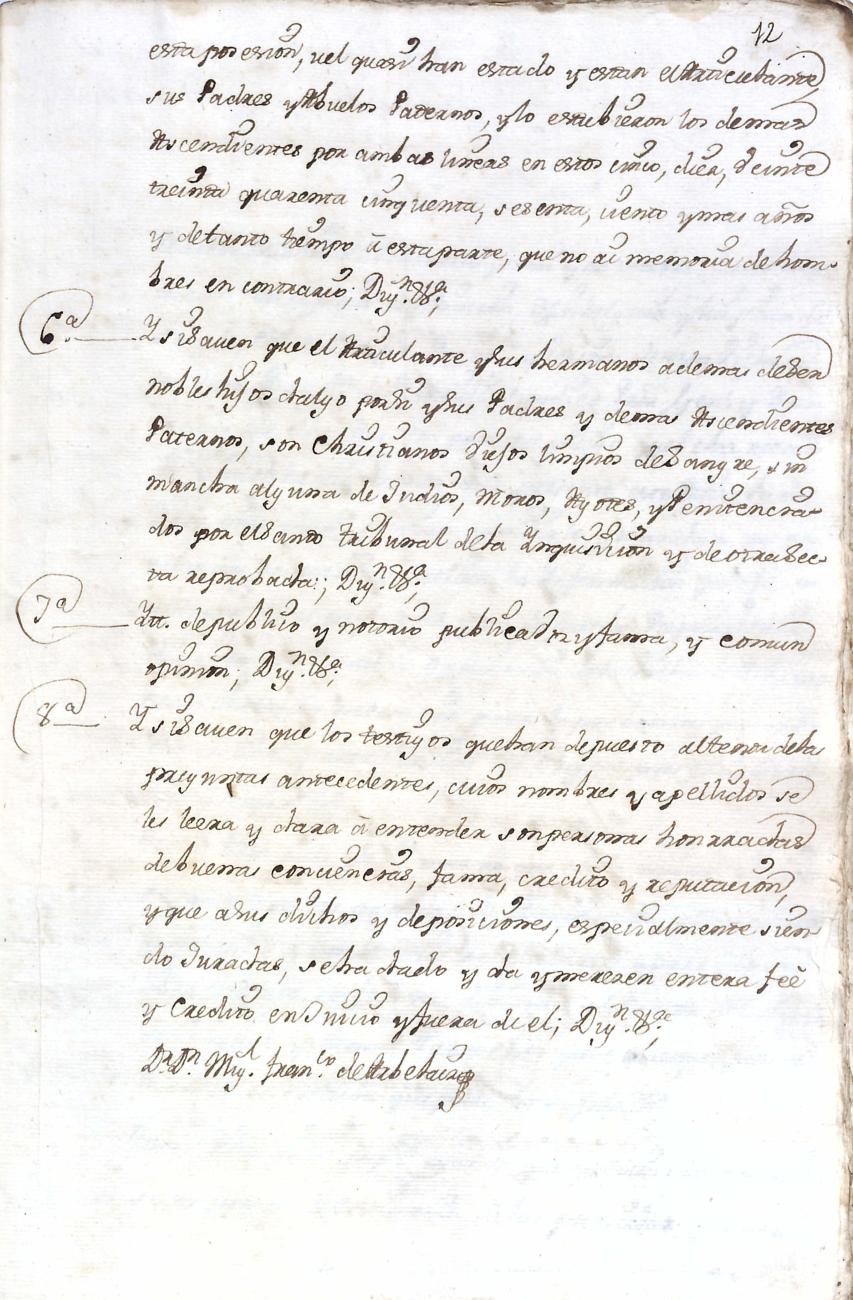 12
esta posesion, vel quasi han estado y estan el Articulante
sus Padres y Abuelos Paternos, y lo estubieron los demas
Ascendientes por ambas lineas en estos cinco, diez, veinte
treinta quarenta cinquenta, sesenta, ciento y mas años
y de tanto tiempo â esta parte, que no ai memoria de hom-
bres en contrario; Dig.n &.a;
6.a Y si saven que el Articulante y sus hermanos ademas de ser
nobles hijos dalgo por si y sus Padres y demas Ascendientes
Paternos, son Christianos viejos limpios de sangre, sin
mancha alguna de Judios, Moros, Agotes, y Penitencia-
dos por el Santo tribunal de la Ynquisicion y de otra sec-
ta reprobada; Dig.n &.a;
7.a Ytt. de publico y notorio publica voz y fama, y comun
opinion; Dig.n &.a;
8.a Y si saven que los testigos que han depuesto al tenor de las
preguntas antecedentes, cuios nombres y apellidos se
les leera y dara â entender son personas honrradas
de buenas conciencias, fama, credito y reputacion,
y que a sus dichos y deposiciones, especialmente sien-
do Juradas, se ha dado y da y merezen entera feè
y Credito en Juicio y fuera de el; Dig.n &.a;
D.r D.n Mig.l Fran.co de Arbelaiz